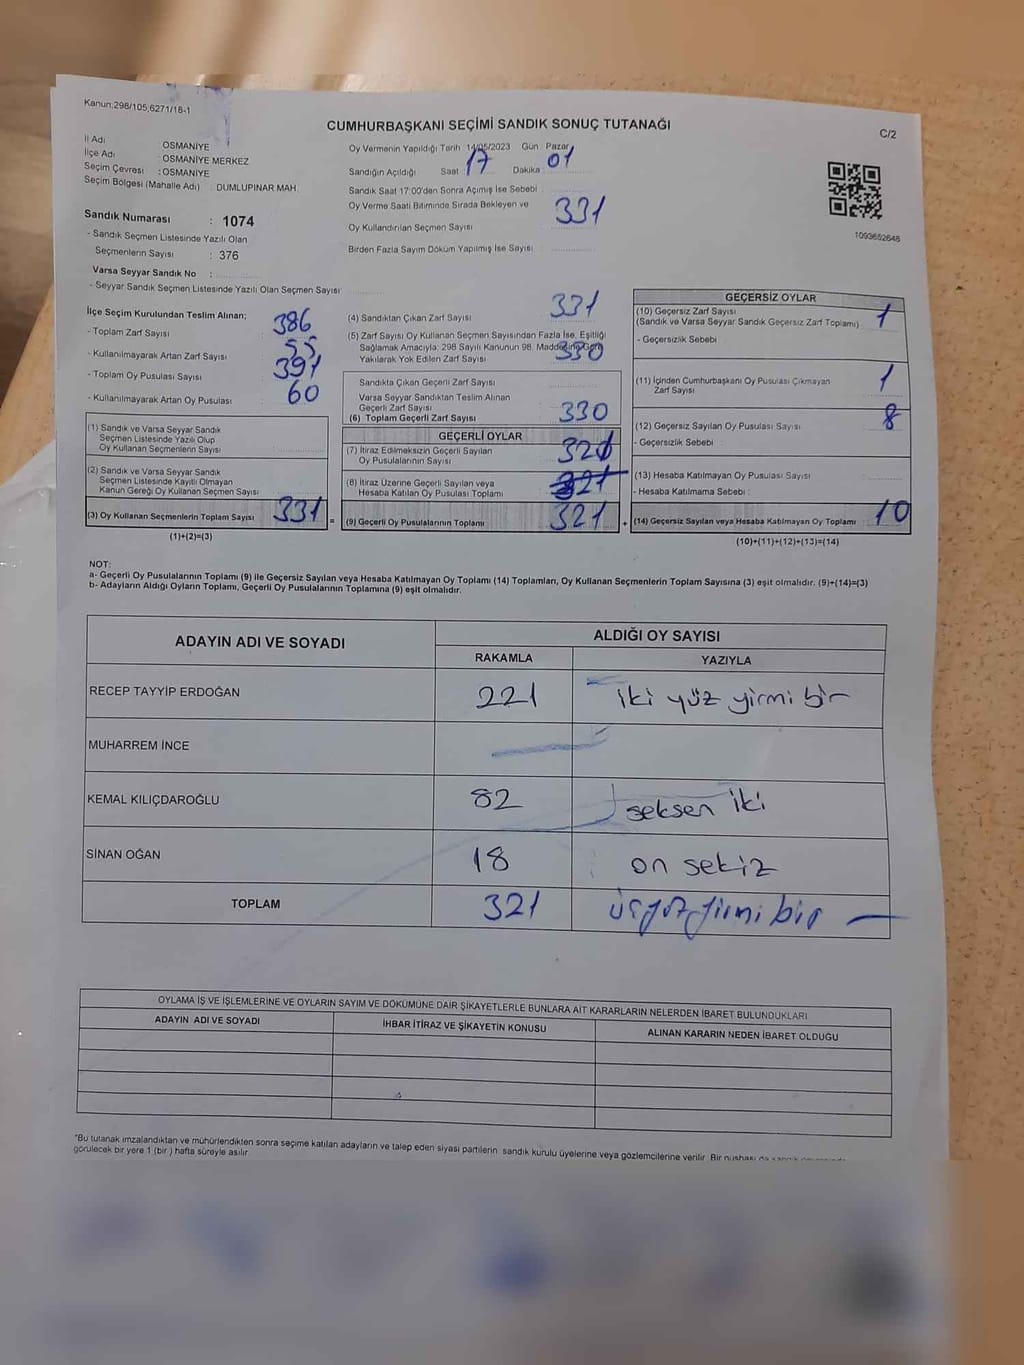 Kanun:298/105,6271/18-1
CUMHURBAŞKANI SEÇİMİ SANDIK SONUÇ TUTANAĞI
C/2
İl Adı : OSMANİYE
İlçe Adı : OSMANİYE MERKEZ
Seçim Çevresi : OSMANİYE
Seçim Bölgesi (Mahalle Adı) : DUMLUPINAR MAH.
Sandık Numarası : 1074
- Sandık Seçmen Listesinde Yazılı Olan
Seçmenlerin Sayısı : 376
Varsa Seyyar Sandık No :
- Seyyar Sandık Seçmen Listesinde Yazılı Olan Seçmen Sayısı
Oy Vermenin Yapıldığı Tarih 14/05/2023 Gün Pazar
Sandığın Açıldığı Saat : 17 Dakika : 01
Sandık Saat 17:00'den Sonra Açımış İse Sebebi
Oy Verme Saati Bitiminde Sırada Bekleyen ve
Oy Kullandırılan Seçmen Sayısı 331
Birden Fazla Sayım Döküm Yapılmış İse Sayısı
1093652648
İlçe Seçim Kurulundan Teslim Alınan;
- Toplam Zarf Sayısı : 386
- Kullanılmayarak Artan Zarf Sayısı : 55
- Toplam Oy Pusulası Sayısı : 391
- Kullanılmayarak Artan Oy Pusulası : 60
(1) Sandık ve Varsa Seyyar Sandık
Seçmen Listesinde Yazılı Olup
Oy Kullanan Seçmenlerin Sayısı
(2) Sandık ve Varsa Seyyar Sandık
Seçmen Listesinde Kayıtlı Olmayan
Kanun Gereği Oy Kullanan Seçmen Sayısı
(3) Oy Kullanan Seçmenlerin Toplam Sayısı 331 =
(1)+(2)=(3)
(4) Sandıktan Çıkan Zarf Sayısı 331
(5) Zarf Sayısı Oy Kullanan Seçmen Sayısından Fazla İse, Eşitliği
Sağlamak Amacıyla; 298 Sayılı Kanunun 98. Maddesine Göre
Yakılarak Yok Edilen Zarf Sayısı 330
Sandıkta Çıkan Geçerli Zarf Sayısı
Varsa Seyyar Sandıktan Teslim Alınan
Geçerli Zarf Sayısı
(6) Toplam Geçerli Zarf Sayısı 330
GEÇERLİ OYLAR
(7) İtiraz Edilmeksizin Geçerli Sayılan
Oy Pusulalarının Sayısı 321
(8) İtiraz Üzerine Geçerli Sayılan veya
Hesaba Katılan Oy Pusulası Toplamı 321
(9) Geçerli Oy Pusulalarının Toplamı 321 +
GEÇERSİZ OYLAR
(10) Geçersiz Zarf Sayısı 1
(Sandık ve Varsa Seyyar Sandık Geçersiz Zarf Toplamı)
- Geçersizlik Sebebi
(11) İçinden Cumhurbaşkanı Oy Pusulası Çıkmayan
Zarf Sayısı 1
(12) Geçersiz Sayılan Oy Pusulası Sayısı 8
- Geçersizlik Sebebi :
(13) Hesaba Katılmayan Oy Pusulası Sayısı
- Hesaba Katılmama Sebebi :
(14) Geçersiz Sayılan veya Hesaba Katılmayan Oy Toplamı 10
(10)+(11)+(12)+(13)=(14)
NOT:
a- Geçerli Oy Pusulalarının Toplamı (9) ile Geçersiz Sayılan veya Hesaba Katılmayan Oy Toplamı (14) Toplamları, Oy Kullanan Seçmenlerin Toplam Sayısına (3) eşit olmalıdır. (9)+(14)=(3)
b- Adayların Aldığı Oyların Toplamı, Geçerli Oy Pusulalarının Toplamına (9) eşit olmalıdır.
ADAYIN ADI VE SOYADI ALDIĞI OY SAYISI
RAKAMLA YAZIYLA
RECEP TAYYİP ERDOĞAN 221 iki yüz yirmi bir
MUHARREM İNCE
KEMAL KILIÇDAROĞLU 82 seksen iki
SİNAN OĞAN 18 on sekiz
TOPLAM 321 üçyüzyirmi bir
OYLAMA İŞ VE İŞLEMLERİNE VE OYLARIN SAYIM VE DÖKÜMÜNE DAİR ŞİKAYETLERLE BUNLARA AİT KARARLARIN NELERDEN İBARET BULUNDUKLARI
ADAYIN ADI VE SOYADI İHBAR İTİRAZ VE ŞİKAYETİN KONUSU ALINAN KARARIN NEDEN İBARET OLDUĞU
*Bu tutanak imzalandıktan ve mühürlendikten sonra seçime katılan adayların ve talep eden siyasi partilerin sandık kurulu üyelerine veya gözlemcilerine verilir. Bir nüshası da
görülecek bir yere 1 (bir) hafta süreyle asılır.